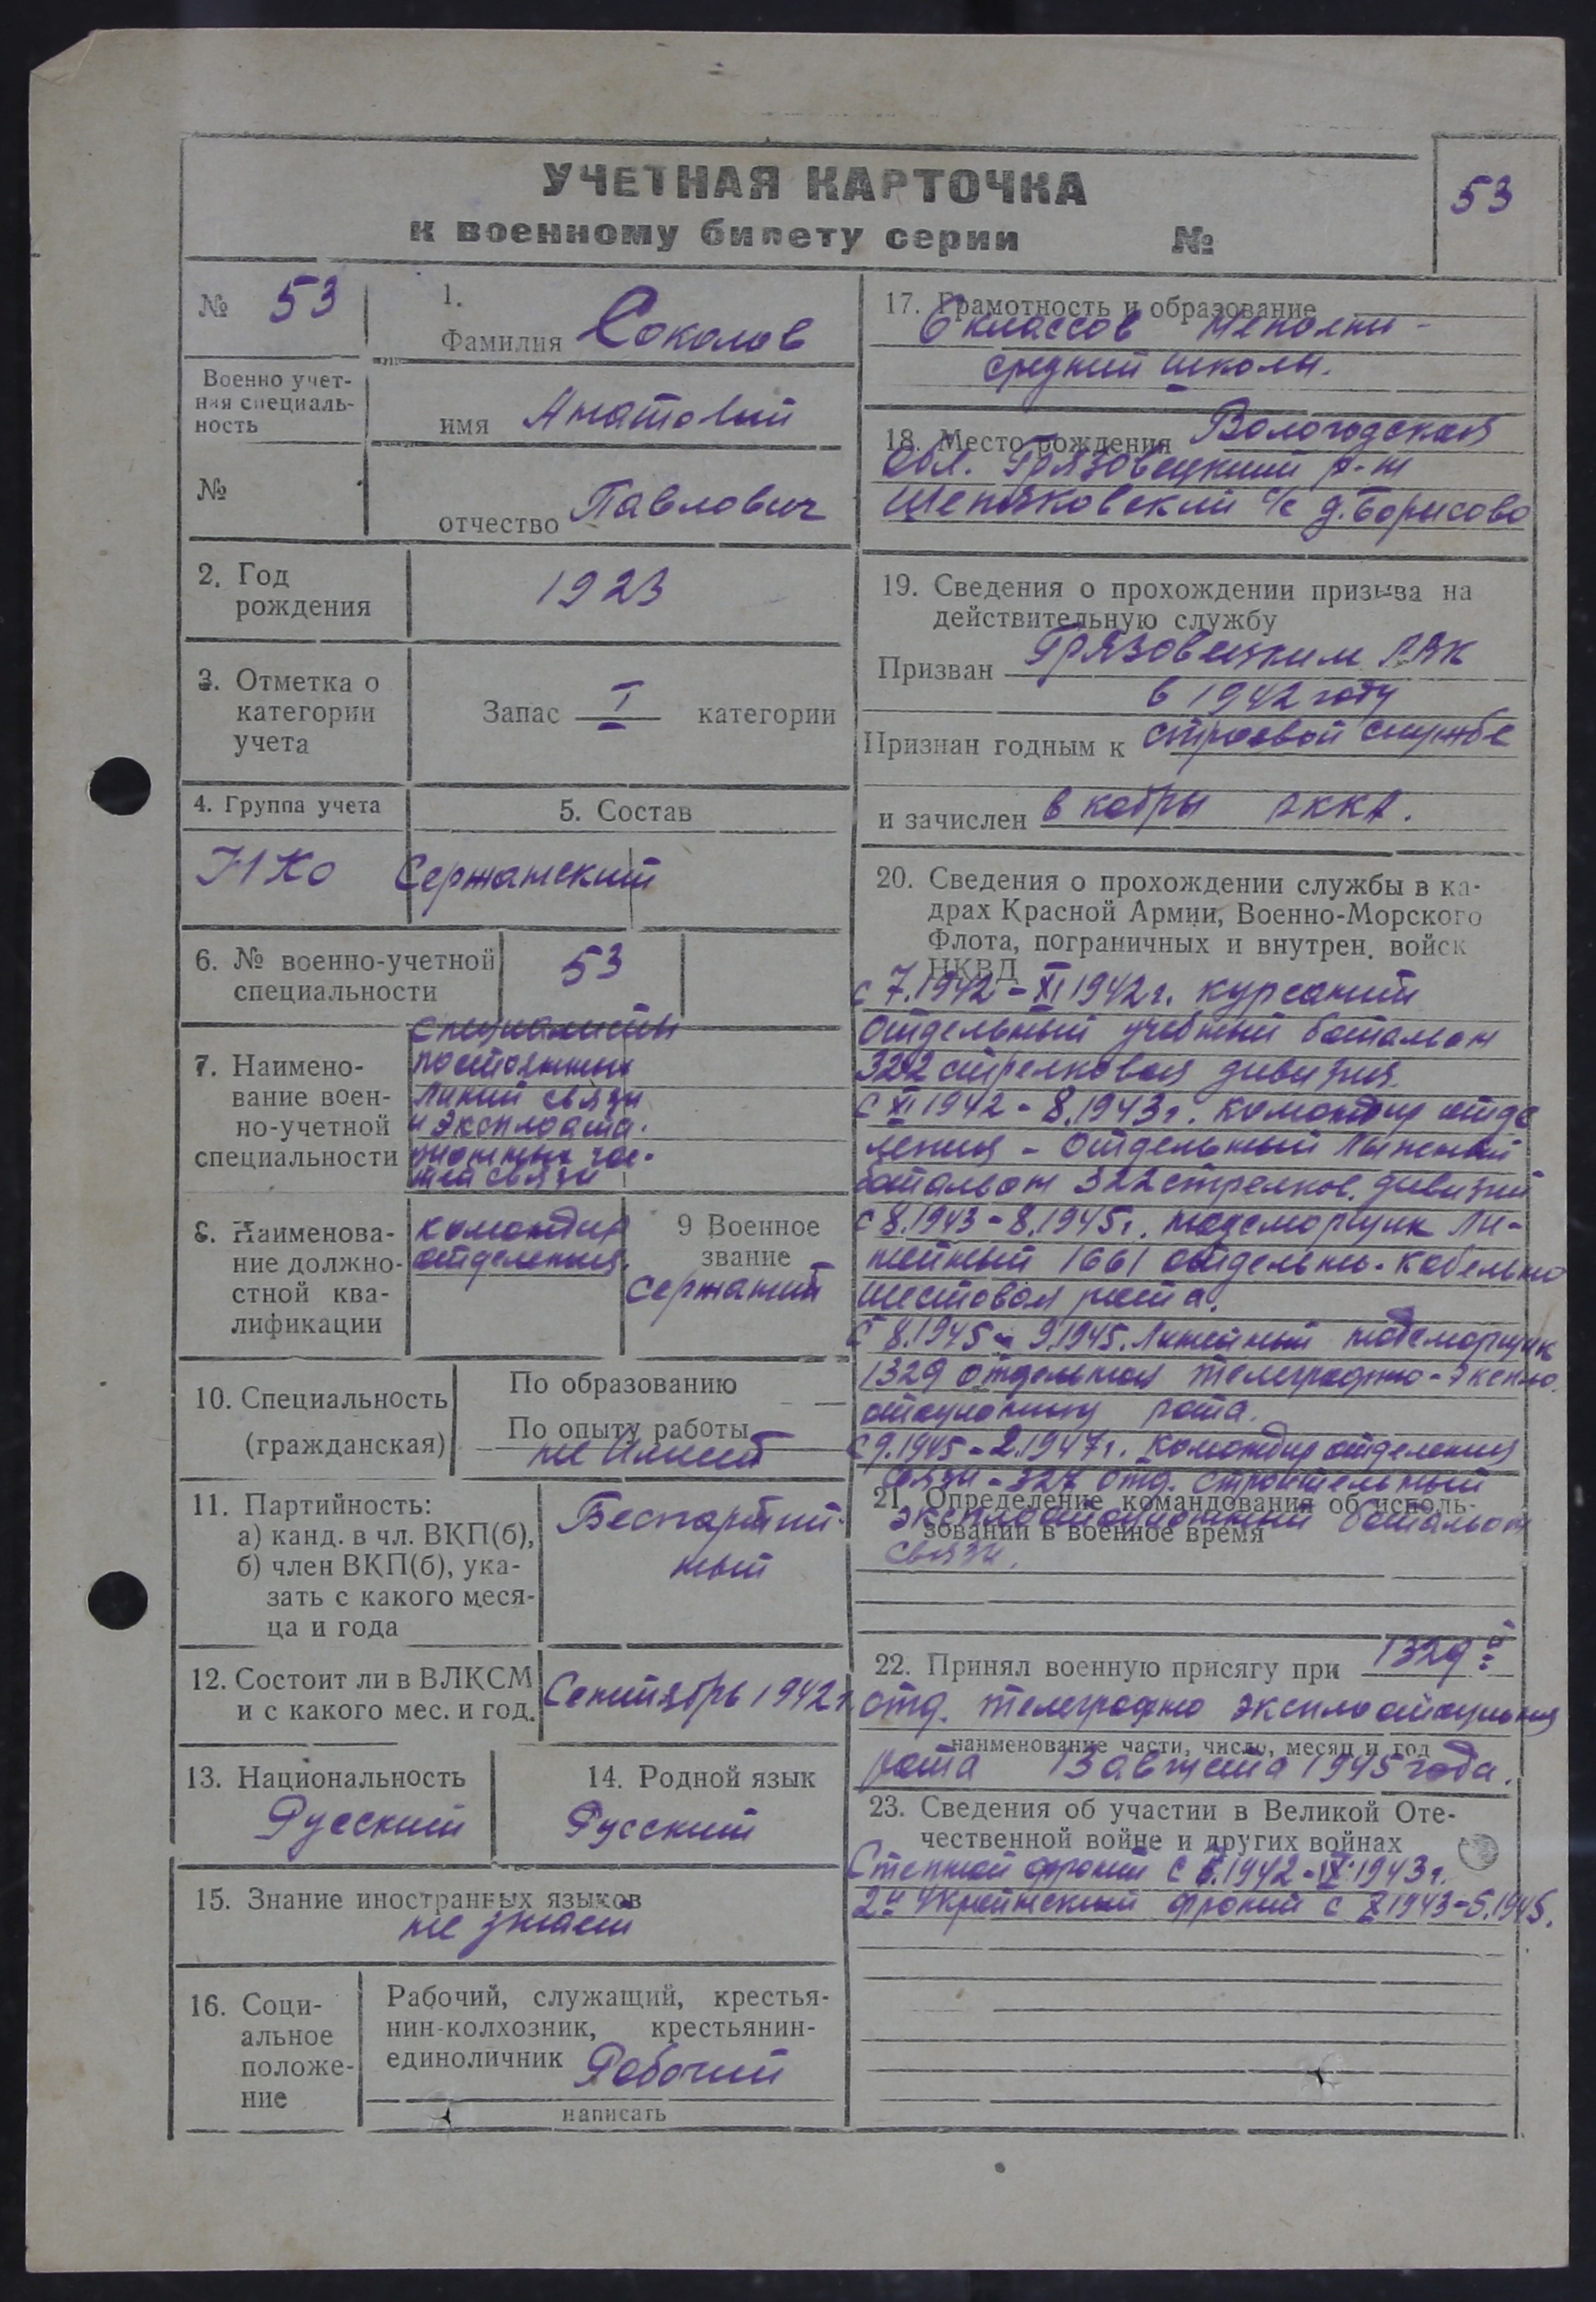 УЧЕТНАЯ КАРТОЧКА
к военному билету серии №
53
№ 53
Военно учет-
ная специаль-
ность
№
1.
Фамилия Соколов
имя Анатолий
отчество Павлович
2. Год
рождения
1923
3. Отметка о
категории
учета
Запас I категории
4. Группа учета
НКо
5. Состав
Сержанский
6. № военно-учетной
специальности
53
7. Наимено-
вание воен-
но-учетной
специальности
специалисты
постоянных
линий связи
и эксплоата-
ционных час-
тей связи
8. Наименова-
ние должно-
стной ква-
лификации
командир
отделения.
9 Военное
звание
сержант
10. Специальность
(гражданская)
По образованию
По опыту работы
не имеет
11. Партийность:
а) канд. в чл. ВКП(б),
б) член ВКП(б), ука-
зать с какого меся-
ца и года
Беспартий-
ный
12. Состоит ли в ВЛКСМ
и с какого мес. и год.
Сентябрь 1942 г.
13. Национальность
Русский
14. Родной язык
Русский
15. Знание иностранных языков
не знает
16. Соци-
альное
положе-
ние
Рабочий, служащий, крестья-
нин-колхозник, крестьянин-
единоличник Рабочий
написать
17. Грамотность и образование
6 классов неполни-
средний школы.
18. Место рождения Вологодская
обл. Грязовецкий р-н
с/с д. Борисово
19. Сведения о прохождении призыва на
действительную службу
Призван Грязовецким РВК
в 1942 году
Признан годным к строевой службе
и зачислен в кадры РККА.
20. Сведения о прохождении службы в ка-
драх Красной Армии, Военно-Морского
Флота, пограничных и внутрен. войск
НКВД
с 7.1942 - XI 1942 г. курсант
отдельный учебный батальон
322 стрелковая дивизия
с XI 1942 - 8.1943 г. командир отде
ления - отдельный лыжный
батальон 322 стрелков. дивизии
с 8.1943 - 8.1945 г. надсморщик ли-
нейный 1661 отдельн. кабельно
шестовая рота.
с 8.1945 - 9.1945. линейный надсморщик
1329 отдельная телеграфно-экспло
атационну рота.
с 9.1945 - 2.1947 г. командир отделения
связи - 327 отд. строительный
эксплоатационный батальон
связи.
21. Определение командования об исполь-
зовании в военное время
22. Принял военную присягу при 1329 й
отд. телеграфно эксплоатационная
наименование части, число, месяц и год
рота 13 августа 1945 года.
23. Сведения об участии в Великой Оте-
чественной войне и других войнах
Степной фронт с 1942 - IX 1943 г.
2й Украинский фронт с X 1943 - 5.1945.